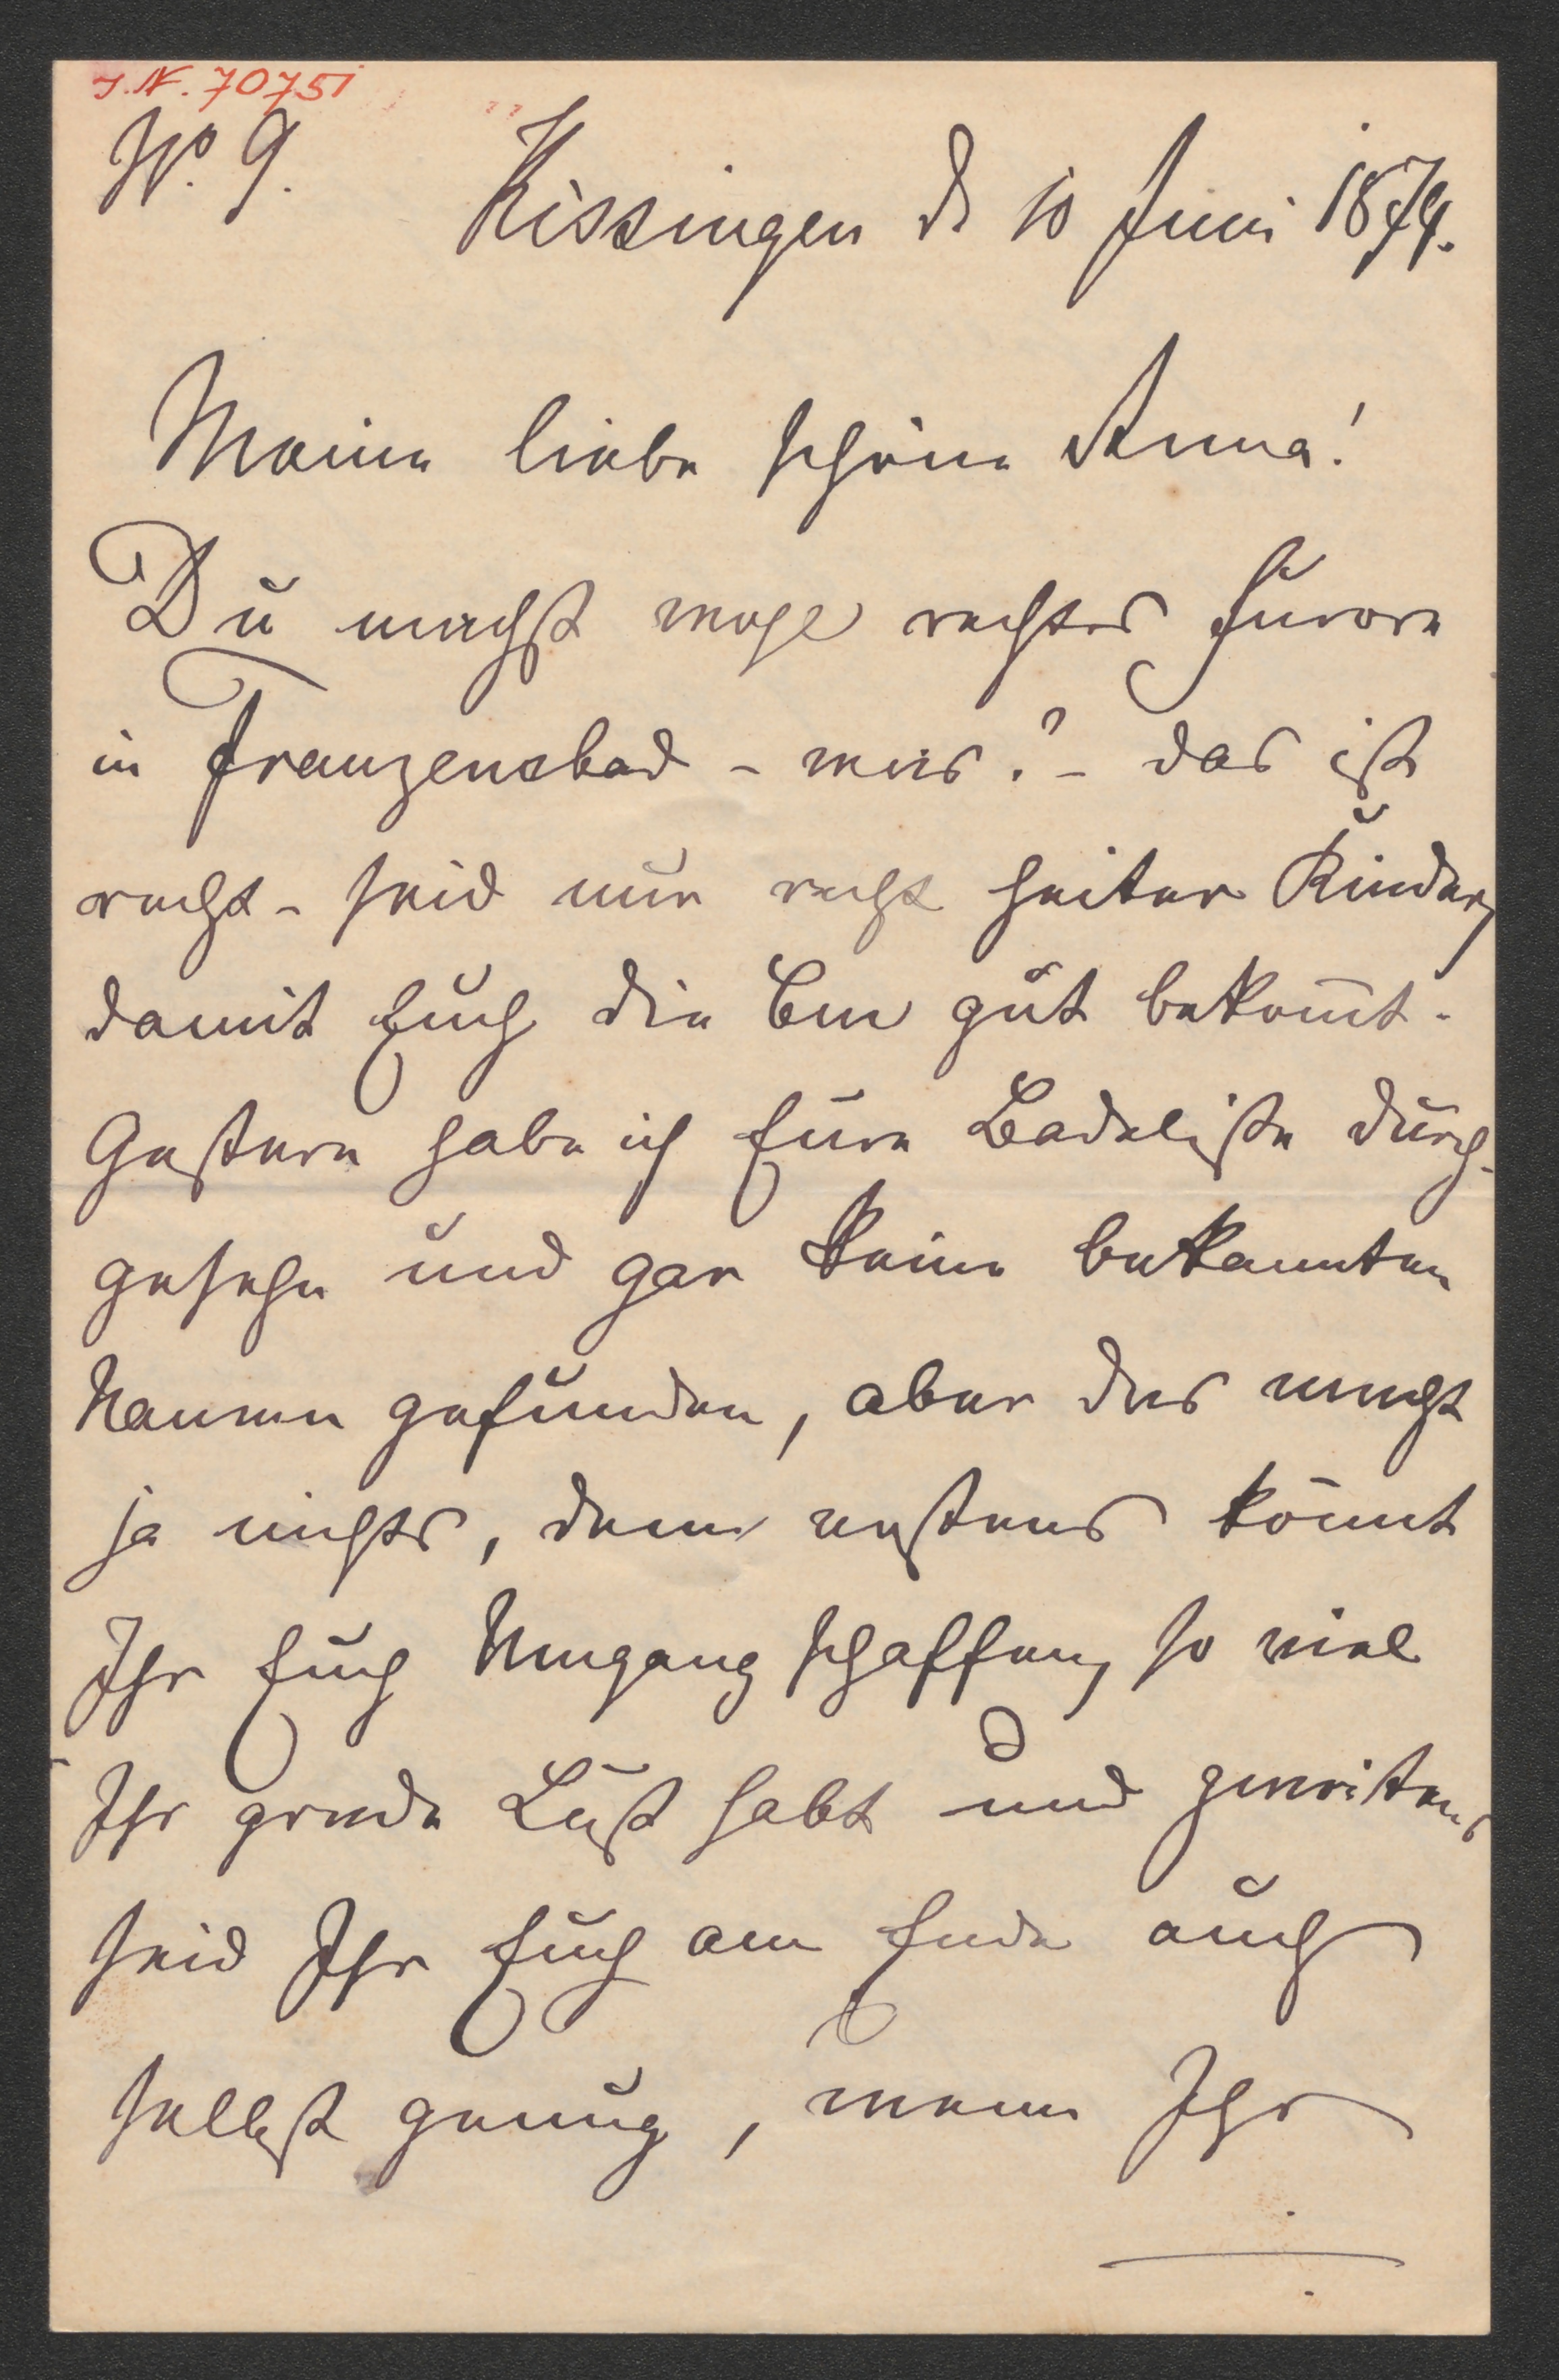 J.N. 70751
No. 9.
Kissingen d 10 Juni 1874.
Meine liebe schöne Anna!
Du machst wohl rechtes Furore
in Franzensbad - was? - das ist
recht - seid nur recht heiter Kinder,
damit Euch die Cur gut bekom̅t.
Gestern habe ich Eure Badeliste durch-
gesehn und gar keine bekannten
Namen gefunden, aber das macht
ja nichts, denn erstens könnt
Ihr Euch Umgang schaffen, so viel
Ihr grade Lust habt und zweitens
seid Ihr Euch am Ende auch
selbst genug, wenn Ihr